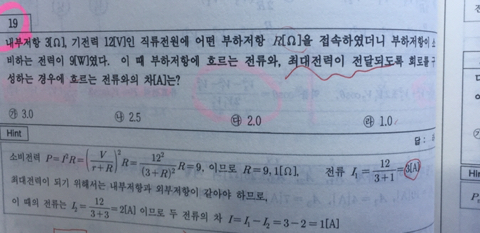 19
내부저항 3[Ω], 기전력 12[V]인 직류전원에 어떤 부하저항 R[Ω]을 접속하였더니 부하저항이 소
비하는 전력이 9[W]였다. 이 때 부하저항에 흐르는 전류와, 최대전력이 전달되도록 회로를 구
성하는 경우에 흐르는 전류와의 차[A]는?
㉮ 3.0 ㉯ 2.5 ㉰ 2.0 ㉱ 1.0
답 : ㉱
Hint
소비전력 P=I²R=(V/(r+R))²R=12²/(3+R)²R=9, 이므로 R=9, 1[Ω], 전류 I₁=12/(3+1)=3[A]
최대전력이 되기 위해서는 내부저항과 외부저항이 같아야 하므로,
이 때의 전류는 I₂=12/(3+3)=2[A] 이므로 두 전류의 차 I=I₁-I₂=3-2=1[A]